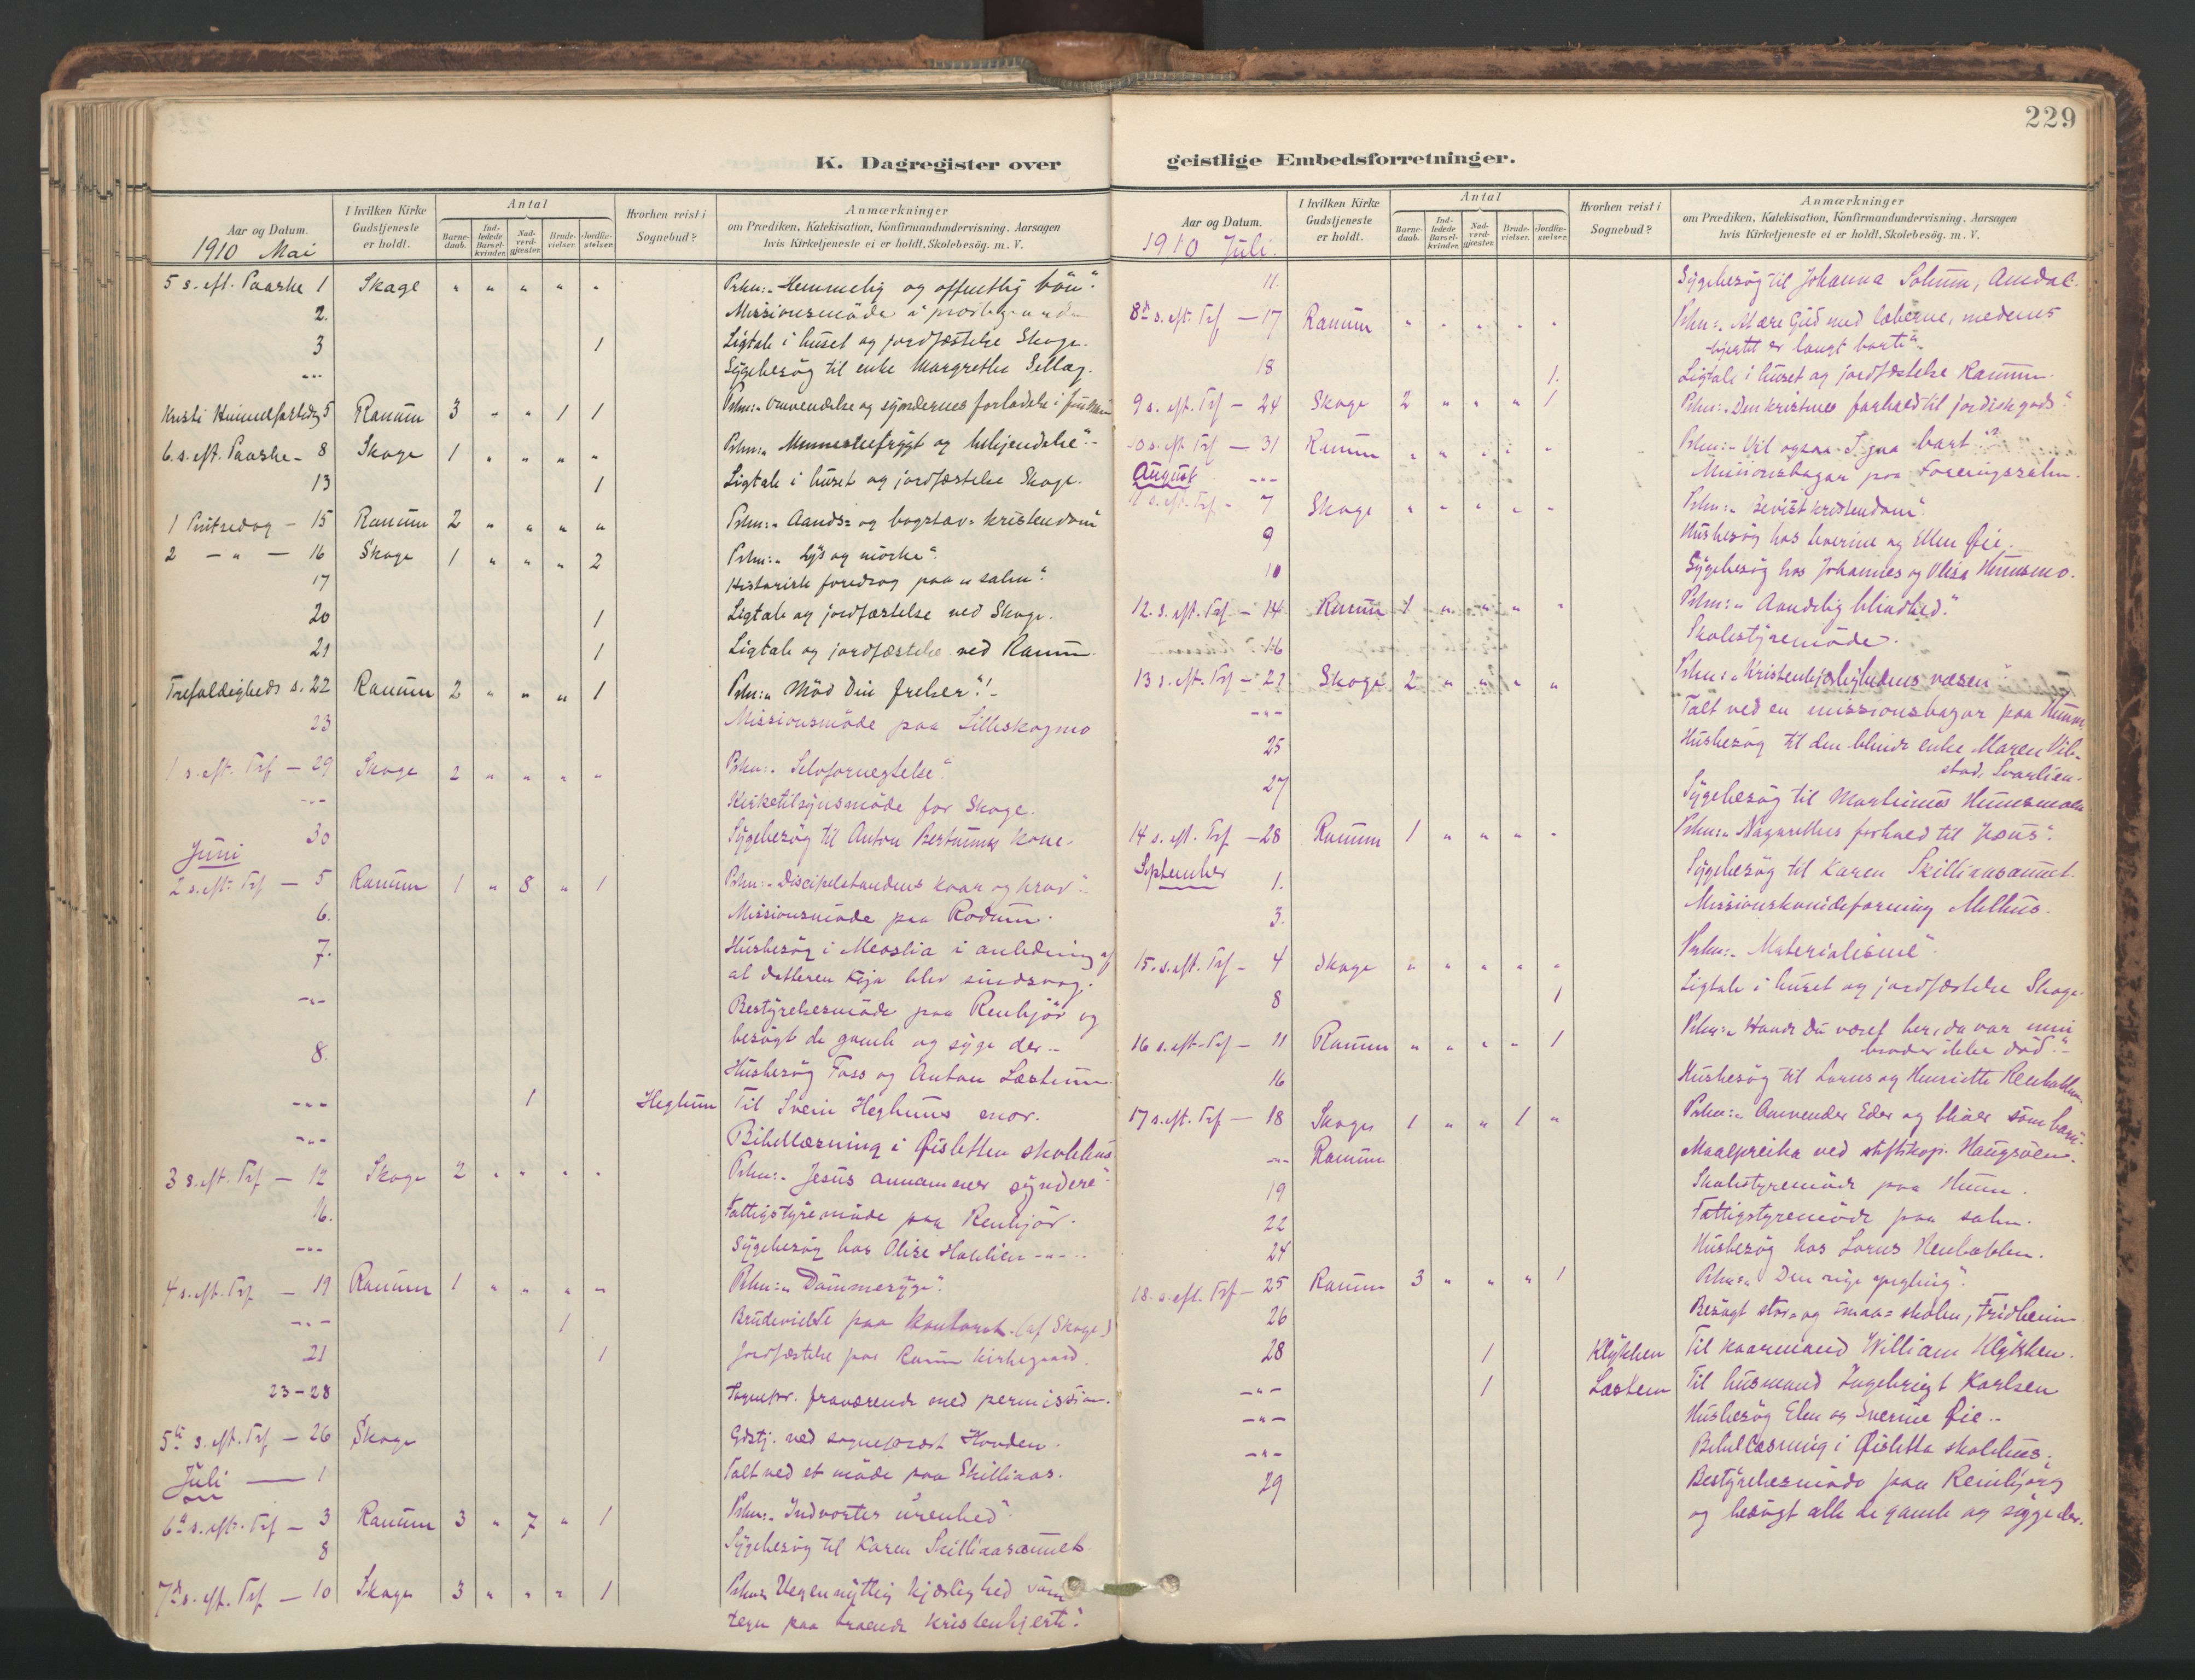 229
K. Dagregister over
geistlige Embedsforretninger.
Aar og Datum.
I hvilken Kirke Gudstjeneste er holdt.
Antal
Barne-daab.
Ind-ledede Barsel-kvinder.
Nad-verd-gjæster.
Brude-vielser.
Jordfæ-stelser.
Hvorhen reist i Sognebud?
Anmærkninger
om Prædiken, Katekisation, Konfirmandundervisning. Aarsagen
hvis Kirketjeneste ei er holdt, Skolebesög. m. V.
1910 Mai
5 s. eft. Paaske 1 Skage " " " " " Prkn: "Hemmelig og offentlig bön".
2. Missionsmöde i
3 1 Ligtale i huset og jordfæstelse Skage.
-"- Sygebesög til enke Margrethe Sellæg.
Kristi Himmelfartsdag 5 Ranum 3 " " 1 1 Prkn: "Omvendelse og syndernes forladelse i
6. s. eft. Paaske - 8 Skage 1 " " " " Prkn: "Menneskefrygt og bekjendelse".
13 1 Ligtale i huset og jordfæstelse Skage.
1 Pintsedag - 15 Ranum 2 " " " " Prkn: "Aands- og bogstav-kristendom"
2 - " - 16 Skage 1 " " " 2 Prkn: "Lys og mörke".
17 Historisk foredrag paa "salen".
20 1 Ligtale og jordfæstelse ved Skage.
21 1 Ligtale og jordfæstelse ved Ranum.
Trefoldigheds s. 22 Ranum 2 " " " 1 Prkn: "Mød Din frelser"!
23 Missionsmöde paa Lilleskogmo
1 s. eft. Trf - 29 Skage 2 " " " " Prkn: "Selvfornegtelse".
-"- Kirketilsynsmöde for Skage.
30 Sygebesög til Anton Bertnums kone.
Juni
2 s. eft. Trf - 5 Ranum 1 " 8 " 1 Prkn: "Discipelstandens kaar og krav".
6. Missionsmöde paa Rodum.
7. Husbesög i Meoslia i anledning af
at datteren Kaja blev sindssvag.
-"- Bestyrelsesmöde paa Renbjör og
besögt de gamle og syge der.
8. Husbesög Foss og Anton Læstum
-"- 1 Heglum Til Svein Heglums mor.
-"- Bibellæsning i Øisletten skolehus
3 s. eft. Trf - 12 Skage 2 " " " " Prkn: "Jesus annammer syndere".
16. Fattigstyremöde paa Renbjör.
-"- Sygebesög hos Olise
4 s. eft. Trf - 19 Ranum 1 " " " " Prkn: "Dömmesyge".
-"- 1 Brudevielse paa kontoret. (af Skage)
21 1 Jordfæstelse paa Ranum kirkegaard.
23-28 Sognepr. fraværende med permission.
5te s. eft. Trf - 26 Skage Gdstj. ved sogneprest Hovden.
Juli - 1 Talt ved et möde paa Skillinaas.
6te s. eft. Trf - 3 Ranum 3 " 7 " 1 Prkn: "Indvortes urenhed".
8 Sygebesög til Karen Skillinasaunet
7de s. eft. Trf - 10 Skage 3 " " " 1 Prkn: "Uegennyttig kjærlighed som
tegn paa troende kristenhjerte".
1910 Juli
11. Sygebesög til Johanna Solum, Amdal.
8de s. eft. Trf - 17 Ranum " " " " " Prkn: "At ære Gud med læberne, medens
hjertet er langt borte".
18 1. Ligtale i huset og jordfæstelse Ranum.
9 s. eft. Trf - 24 Skage 2 " " " 1 Prkn: "Den kristnes forhold til jordisk gods".
10 s. eft. Trf - 31 Ranum " " " " " Prkn: "Vil ogsaa I gaa bort?"
August -"- Missionsbazar paa Foreningssalen.
11 s. eft. Trf - 7 Skage " " " " " Prkn: "Bevidst kristendom".
9 Husbesög hos Severine og Ellen Øie.
10 Sygebesög hos Johannes og Olisa Hunsmo.
12. s. eft. Trf - 14 Ranum 1 " " " " Prkn: "Aandelig blindhed."
16 Skolestyremöde.
13 s. eft. Trf - 21 Skage 2 " " " " Prkn: "Kristenkjærlighedens væsen"
-"- Talt ved en missionsbazar paa Hunn
25 Husbesög til den blinde enke Maren Vib-
stad, Svarlien.
27 Sygebesög til Martinus Hunsmoen
14 s. eft. Trf - 28 Ranum 1 " " " " Prkn: "Nazarethus forhold til Jesus".
September 1. Sygebesög til Karen Skillinasaunet.
3. Missionskvindeforening Melhus.
15. s. eft. Trf - 4 Skage " " " " " Prkn: "Materialisme".
8 1 Ligtale i huset og jordfæstelse Skage.
16 s. eft. Trf - 11 Ranum " " " " 1 Prkn: "Havde Du været her, da var min
broder ikke död."
16 Husbesög til Lorns og Henriette
17 s. eft. Trf - 18 Skage 1 " " 1 " Prkn: "Omvender Eder og bliver som barn".
-"- Ranum Maalpreika ved stiftskap. Haugsöen.
19 Skolestyremöde paa Hunn.
22 Fattigstyremöde paa salen.
24 Husbesög hos Lorns
18. s. eft. Trf - 25 Ranum 3 " " " 1 Prkn: "Den rige yngling".
26 Besögt stor- og smaa-skolen, Fridheim
28 1 Klykken Til kaarmand William Klykken.
-"- 1 Læstem Til husmand Ingebrigt Karlsen
-"- Husbesög Elen og Sverine Øie.
-"- Bibellæsning i Øisletta skolehus.
29 Bestyrelsesmöde paa Reinbjörg
og besögt alle de gamle og syge der.